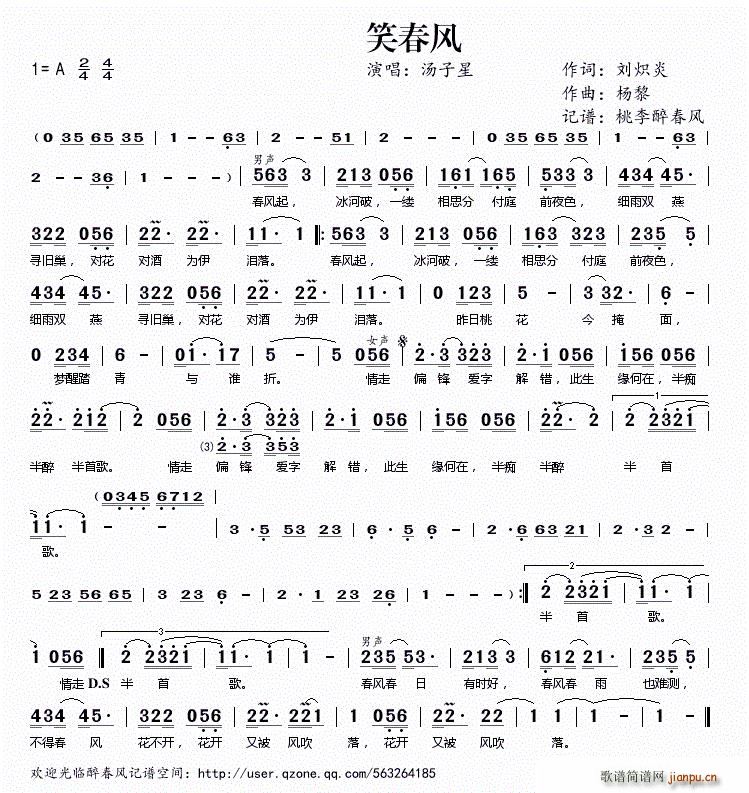 笑春风
1= A 2/4 4/4 演唱：汤子星 作词：刘炽炎
作曲：杨黎
记谱：桃李醉春风
( 0 35 65 35 | 1 - - 63 | 2 - - 51 | 2 - - - | 0 35 65 35 | 1 - - 63 |
男声
2 - - 36 | 1 - - - ) | 563 3 | 213 056 | 161 165 | 563 3 | 434 45· |
春风起， 冰河破，一缕 相思分 付庭 前夜色， 细雨双 燕
322 056 | 22· 22· | 11· 1 |: 563 3 | 213 056 | 163 323 | 235 5 |
寻旧巢， 对花 对酒 为伊 泪落。 春风起， 冰河破，一缕 相思分 付庭 前夜色，
434 45· | 322 056 | 22· 22· | 11· 1 | 0 123 | 5 - | 3 32· | 6 - |
细雨双 燕 寻旧巢， 对花 对酒 为伊 泪落。 昨日桃 花 今 掩 面，
女声
0 234 | 6 - | 01· 17 | 5 - | 5 056 | 2·3 323 | 2·1 056 | 156 056 |
梦醒踏 青 与 谁 折。 情走 偏 锋 爱字 解 错，此生 缘何在，半痴
1
22· 212 | 2 056 | 2·3 323 | 2·1 056 | 156 056 | 22· 2 | 2 2321 |
(3) 2·3 353
半醉 半首歌。 情走 偏 锋 爱字 解 错，此生 缘何在，半痴 半醉 半 首
( 0345 6712 |
11· 1 - - | 3·5 53 23 | 6·5 6 - | 2·6 63 21 |
歌。
2
5 23 56 65 | 3 23 6 - | 2·1 23 26 | 1 - - - ) :| 2 2321 | 11· 1 |
半 首 歌。
3
男声
1 056 || 2 2321 | 11· 1 | 1 - | 235 53· | 213 3 | 612 21 | 235 5 |
情走 D.S 半 首 歌。 春风春 日 有时好， 春风春 雨 也难则，
434 45· | 322 056 | 22· 221 | 1 056 | 22· 22· | 11· 1 | 1 - ||
不得春 风 花不开，花开 又被 风吹 落，花开 又被 风吹 落。
欢迎光临醉春风记谱空间：http://user.qzone.qq.com/563264185
歌谱简谱网
jianpu.cn